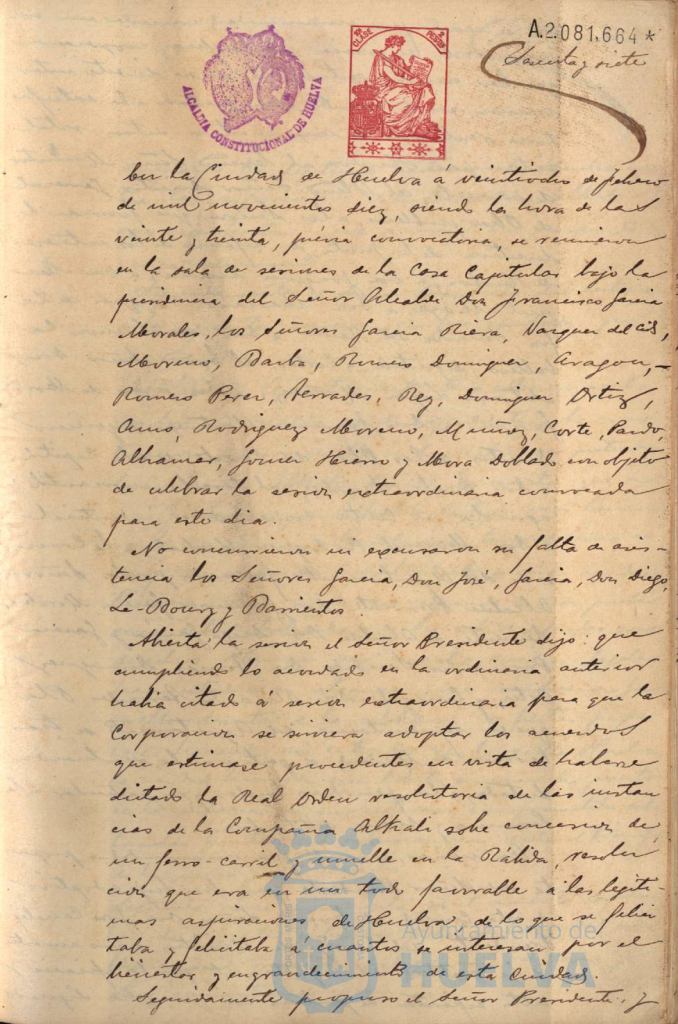 A.2.081,664*
Sesenta y siete
ALCALDIA CONSTITUCIONAL DE HUELVA
CLASE PESETAS
En la Ciudad de Huelva á veintiocho de febrero
de mil novecientos diez, siendo la hora de las
veinte y treinta, prévia convocatoria, se reunieron
en la sala de sesiones de la Casa Capitular bajo la
presidencia del Señor Alcalde Don Francisco Garcia
Morales, los Señores Garcia Riera, Vazquez del Cid,
Moreno, Barba, Romero Dominguez, Aragon,
Romero Perez, Terrades, Rey, Dominguez Ortiz,
Amo, Rodriguez Moreno, Muñoz, Corte, Pardo,
Alhamar, Gomez Hierro y Mora Doblado con objeto
de celebrar la sesion extraordinaria convocada
para este dia.
No concurrieron ni excusaron su falta de asis-
tencia los Señores Garcia, Don José, Garcia, Don Diego,
Le-Bourg y Barrientos.
Abierta la sesion el Señor Presidente dijo: que
cumpliendo lo acordado en la ordinaria anterior
habia citado á sesion extraordinaria para que la
Corporacion se sirviera adoptar los acuerdos
que estimase procedentes en vista de haberse
dictado la Real orden resolutoria de las instan
cias de la Compañia Alkali sobre concesion de
un ferro-carril y muelle en la Rábida, resolu
cion que era en un todo favorable á las legíti-
mas aspiraciones de Huelva, de lo que se felici
taba y felicitaba á cuantos se interesan por el
bienestar y engrandecimiento de esta Ciudad.
Seguidamente propuso el Señor Presidente, y
Ayuntamiento de
HUELVA